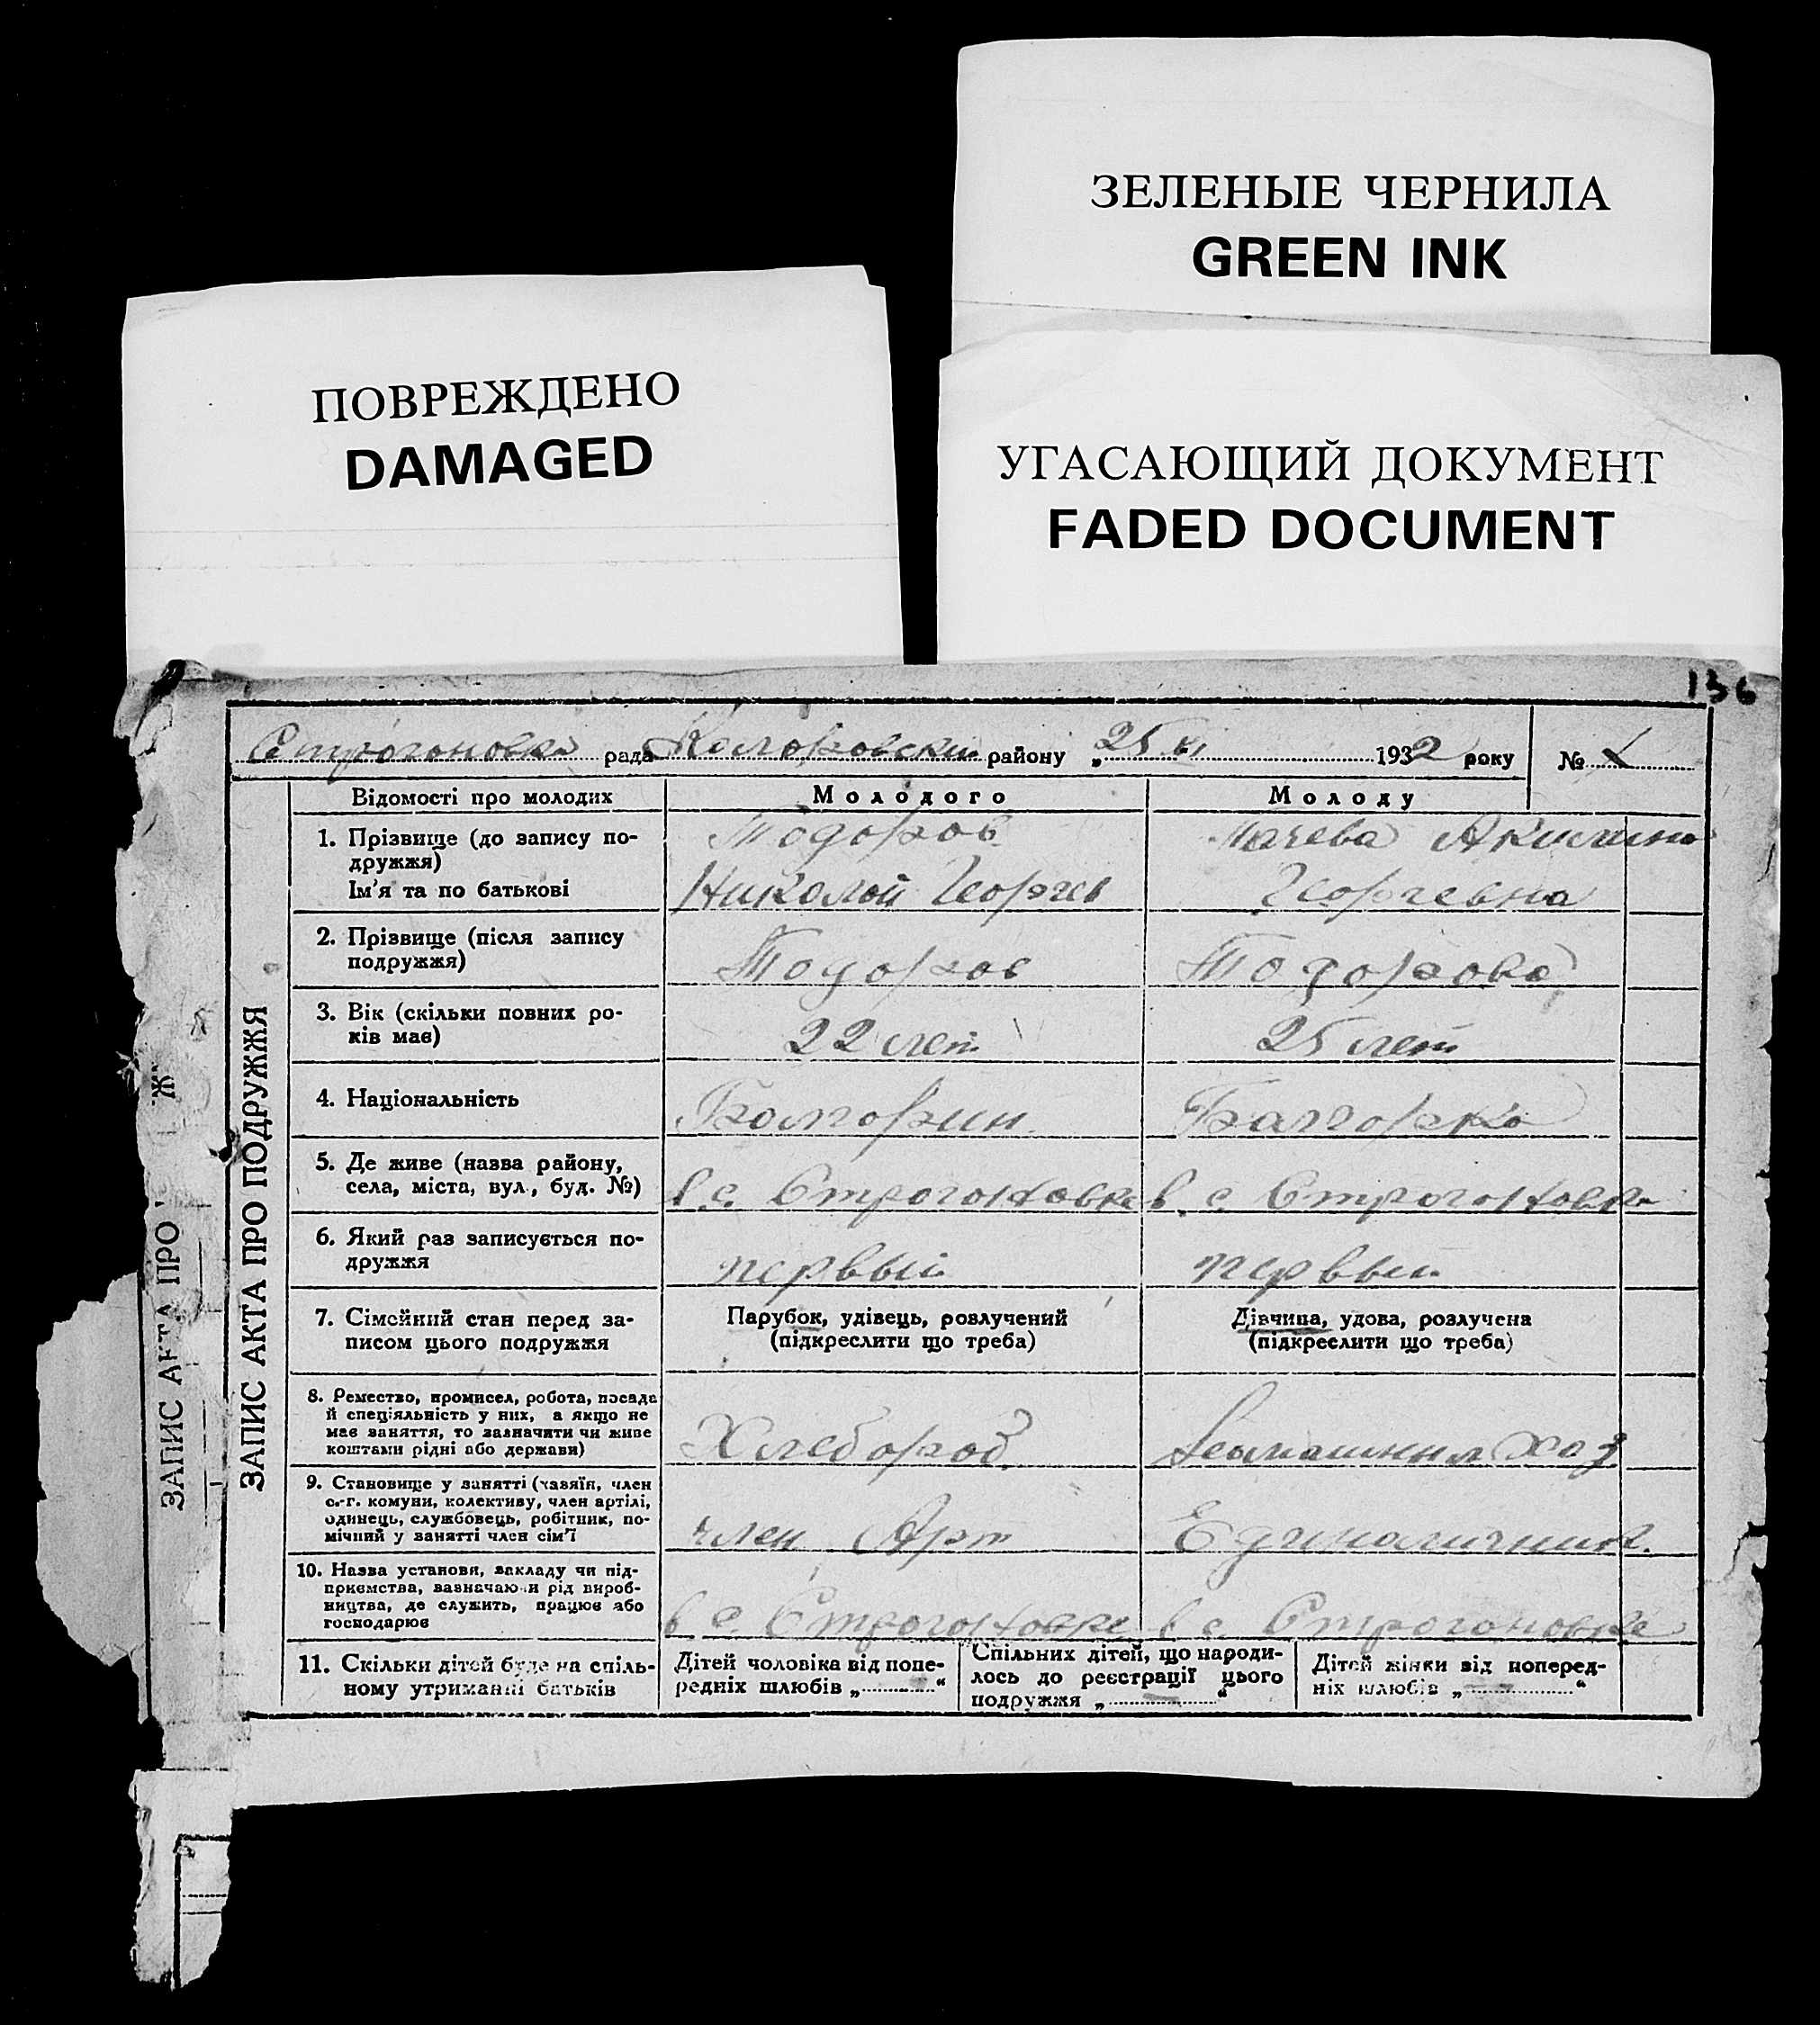 ЗЕЛЕНЫЕ ЧЕРНИЛА
GREEN INK
ПОВРЕЖДЕНО
DAMAGED
УГАСАЮЩИЙ ДОКУМЕНТ
FADED DOCUMENT
136
Строгоновка рада района „25 VI 1932 року №
ЗАПИС АКТА ПРО
ЗАПИС АКТА ПРО ПОДРУЖЖЯ
Відомості про молодих Молодого Молоду
1. Прізвище (до запису по- Тодоров Акилина
дружжя)
Ім'я та по батькові Николай Георгев Георгевна
2. Прізвище (після запису
подружжя) Тодоров Тодорова
3. Вік (скільки повних ро-
ків має) 22 лет 25 лет
4. Національність Болгорин Балгорка
5. Де живе (назва району,
села, міста, вул., буд. №) в с. Строгоновке в с. Строгоновке
6. Який раз записується по-
дружжя первый первый
7. Сімейний стан перед за- Парубок, удівець, розлучений Дівчина, удова, розлучена
писом цього подружжя (підкреслити що треба) (підкреслити що треба)
8. Ремество, промисел, робота, посада
й спеціяльність у них, а якщо не
має заняття, то зазначити чи живе Хлебороб хоз
коштами рідні або держави)
9. Становище у занятті (хазяїн, член
с.-г. комуни, колективу, член артілі,
одинець, службовець, робітник, по- член Арт Единаличник.
мічний у занятті член сім'ї
10. Назва установи, закладу чи під-
приємства, зазначаючи рід вироб-
ництва, де служить, працює або в с. Строгоновке в с. Строгоновке
господарює
11. Скільки дітей буде на спіль- Дітей чоловіка від попе- Спільних дітей, що народи- Дітей жінки від поперед-
ному утриманні батьків редніх шлюбів „ — “ лось до реєстрації цього ніх шлюбів „ — “
подружжя „ — “